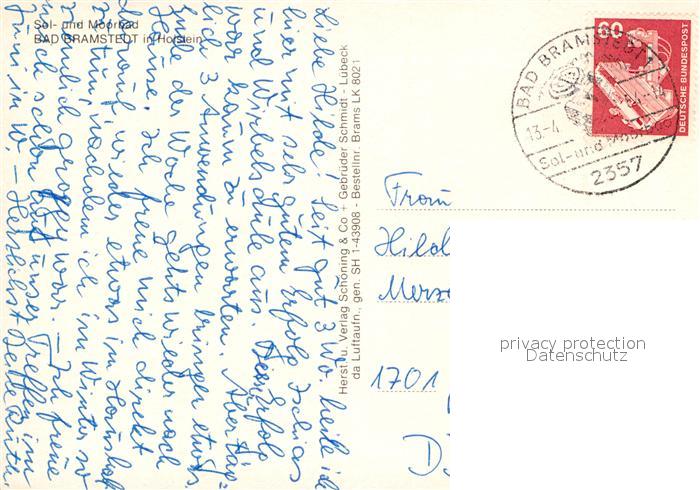 Sol- und Moorbad
BAD BRAMSTEDT in Holstein
Liebe Hilde! Seit gut 3 Wo. heile ich
hier mit sehr gutem Erfolg Ischias
und Wirbelsäule aus. Erfolg
war kaum zu erwarten. Aber täg=
lich 3 Anwendungen bringen etwas.
Ende der Woche gehts wieder nach
Hause. Ich freue mich direkt
darauf wieder etwas im Haushalt
zu tun, nachdem ich im Winter so
ziemlich war. – Ich freue
mich schon auf unser Treffen im
Juni in W. – Herzlichst Deine Ruth.
Herst. u. Verlag Schöning & Co + Gebrüder Schmidt - Lübeck
da Luftaufn., gen. SH 1-43908 - Bestellnr. Brams LK 8021
60
DEUTSCHE BUNDESPOST
BAD BRAMSTEDT 1
13.-4
Sol- und Moorbad
2357
Frau
Hild
Merz
1701
D
privacy protection
Datenschutz